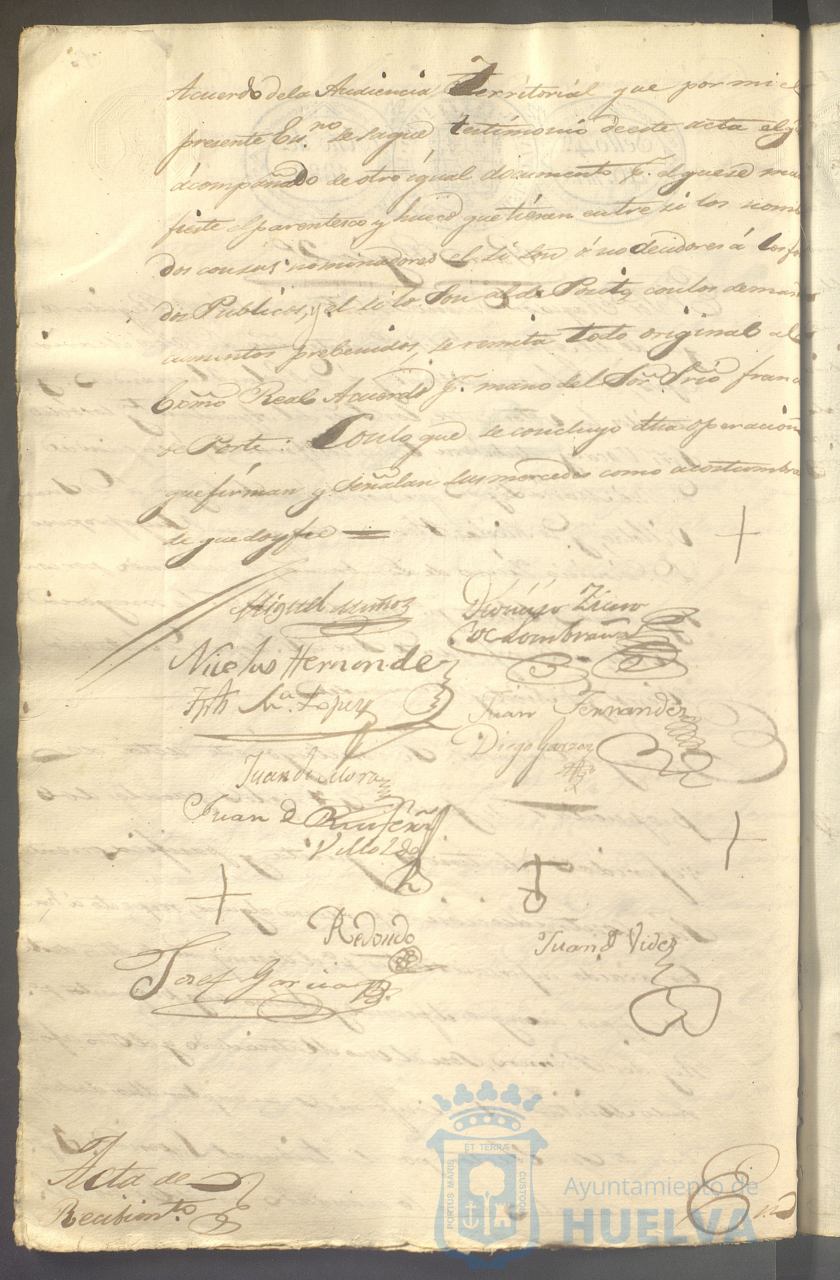 Acuerdo de la Audiencia Territorial que por mi el
presente Esn.no se saque testimonio de este acta el q.e
acompañado de otro igual documento P. el que se mani
fieste el parentesco y hueco que tienen entre si los nom
dos con sus nominadores el si son ó no deudores á los fon
dos Publicos, y el si lo son al de Posito con los demas
cumentos prebenidos, se remita todo original al
Exmo Real Acuerdo P. mano del Sor. Srio franco
de Porte: Con lo que se concluyo dha operacion
que firman y señalan sus mercedes como acostumbra
de que doy fee =
Miguel Muñoz
Dionisio
de Lombraña
Nicolas Hernandez
M.a Lopez
Juan Fernandez
Diego Garzon
Juan de Mora
Juan de
Redondo
Juan de Videz
Josef Garcia
Acta de
Recibient.o
ET TERRÆ
PORTUS MARIS
CUSTODIA
Ayuntamiento de
HUELVA